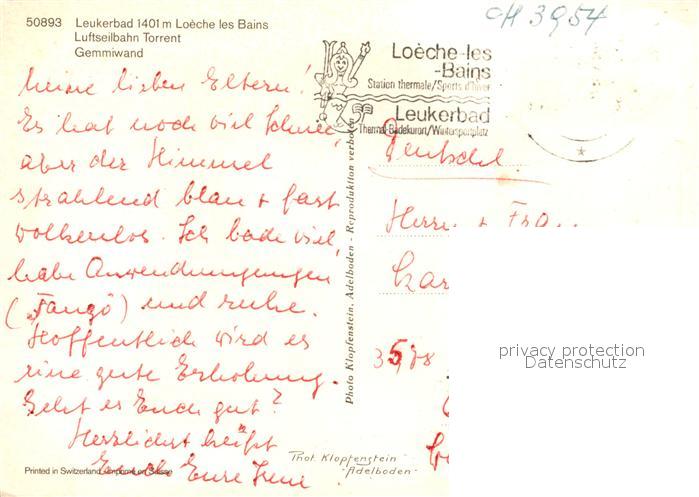 50893 Leukerbad 1401 m Loèche les Bains
Luftseilbahn Torrent
Gemmiwand
CH 3954
Loèche-les
-Bains
Station thermale/Sports d'hiver
Leukerbad
Thermal-Badekurort/Wintersportplatz
Meine lieben Eltern!
Es hat noch viel Schnee,
aber der Himmel
strahlend blau + fast
wolkenlos. Ich bade viel,
habe Anwendungungen
("Fango") und ruhe.
Hoffentlich wird es
eine gute Erholung.
Geht es Euch gut?
Herzlichst
Eure Irene
Photo Klopfenstein, Adelboden - Reproduktion verboten
Herrn + Fra
Kar
privacy protection
Datenschutz
Phot. Klopfenstein
-Adelboden-
Printed in Switzerland - Imprimé en Suisse